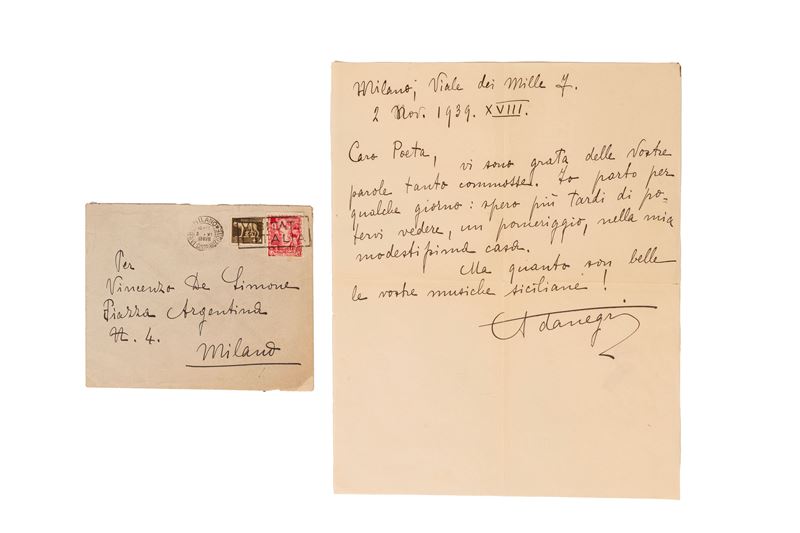 Per
Vincenzo De Simone
Piazza Argentina
N. 4.
Milano
MILANO
Milano, Viale dei Mille 7.
2 Nov. 1939. XVIII.
Caro Poeta,
vi sono grata delle Vostre
parole tanto commosse. Io parto per
qualche giorno: spero più tardi di po-
tervi vedere, un pomeriggio, nella mia
modestissima casa.
Ma quanto son belle
le vostre musiche siciliane!
Adanegri